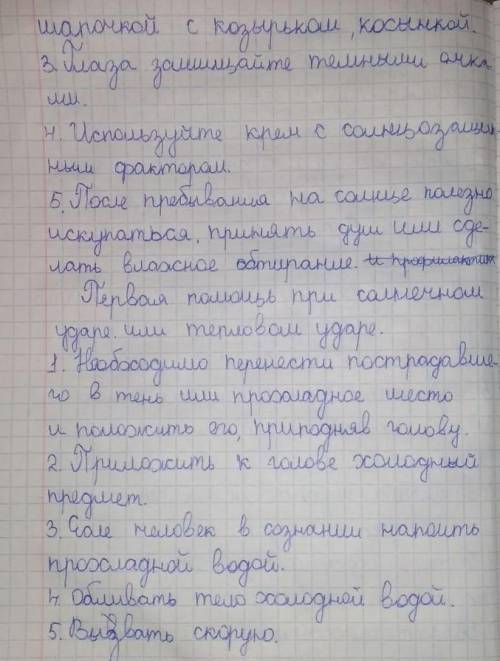 шапочкой с козырьком, косынкой.
3. Глаза защищайте темными очка-
ми.
4. Используйте крем с солнцозащит
ным фактором.
5. После пребывания на солнце полезно
искупаться, принять душ или сде-
лать влажное обтирание. и профилактик
Первая помощь при солнечном
ударе. или тепловом ударе.
1. Необходимо перенести пострадавше-
го в тень или прохладное место
и положить его, приподняв голову.
2. Приложить к голове холодный
предмет.
3. Если человек в сознании напоить
прохладной водой.
4. Обливать тело холодной водой.
5. Вызвать скорую.